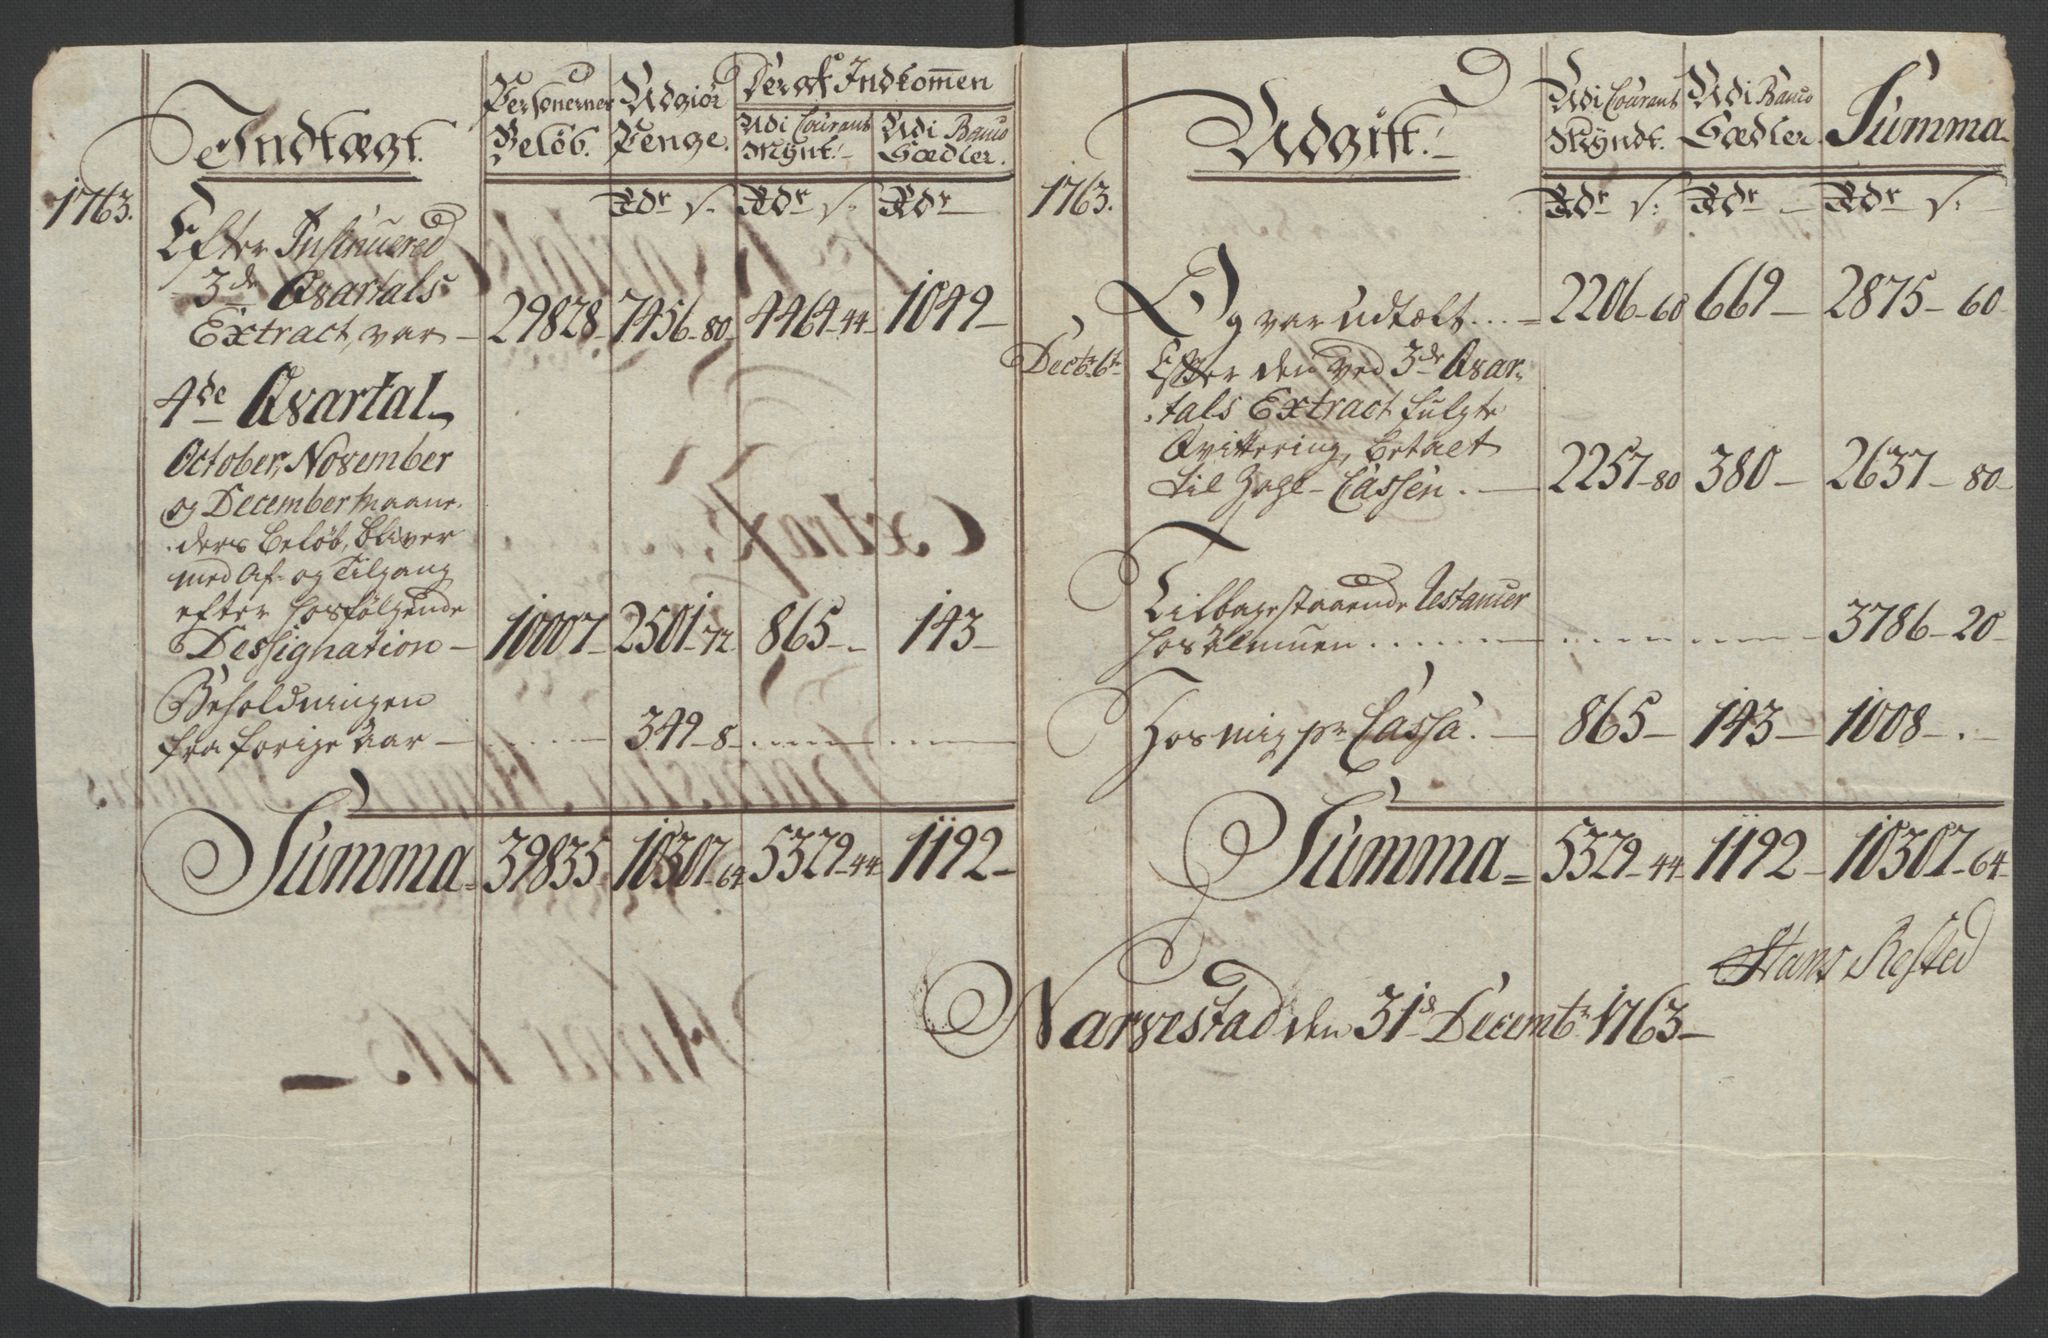 Indtægt.
Personernes Beløb.
Udgiør Penge.
Deraf Indkommen
Udi Courant Mynt.
Udi Banco Sædler.
Rdr s. Rdr s. Rdr
1763.
Efter Insinuered
3de Qvartals
Extract, var — 29828 — 7456 — 80 — 4464 — 44 — 1049 —
4de Qvartal
October, November
og December Maane-
ders beløb, bliver
med Af- og Tilgang
efter hosfølgende
Dessignation — 10007 — 2501 — 72 — 865 — . — 143 —
Beholdningen
fra forige Aar — 349 — 8 —
Summa = 39835 10307 — 64 5329 — 44 1192 —
Udgift.
Udi Courant Myndt.
Udi Banco Sædler.
Summa
Rdr s: Rdr — Rdr s:
1763.
Og var udtælt . . . . = 2206 — 60 669 — 2875 — 60
Decbr 6t Efter den ved 3de Qvar-
tals Extract fulgte
Qvittering, betalt
til Zahl-Cassen. — 2257 — 80 380 — 2637 — 80 —
Tilbagestaaende Restancer
hos Almuen . . . . 3786 — 20 —
Hos mig pr Cassa. — 865 — 143 — 1008 — . —
Summa = 5329 — 44 1192 — 10307 — 64
Hans Resfted
Narvestad den 31de Decembr 1763 —